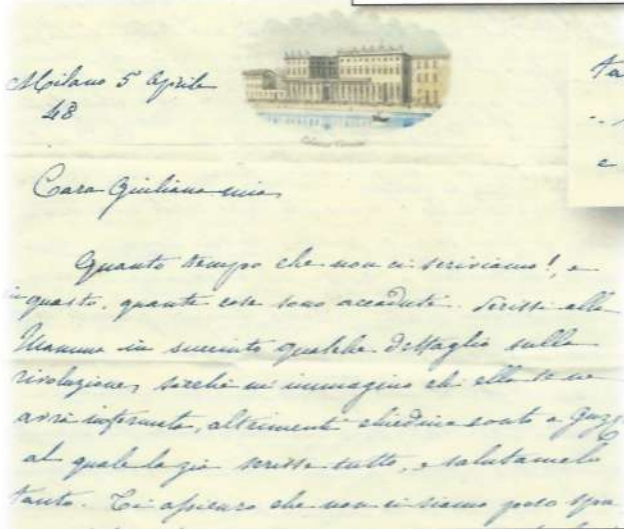 Milano 5 Aprile
48
Cara Giuliana mia
Quanto tempo che non ci scriviamo!, e
in questo, quante cose sono accadute. Scrissi alla
Mamma in succinto qualche dettaglio sulla
rivoluzione, sicché mi immagino ch'ella te ne
avrà informata, altrimenti chiedine conto a
al quale la zia scrisse tutto, e salutamelo
tanto. Ti assicuro che non ci siamo poco spa
e